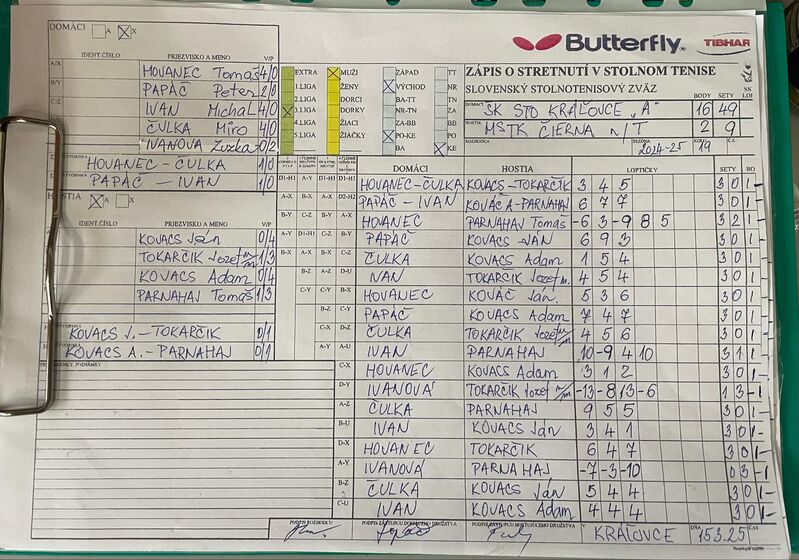 DOMÁCI A X
IDENT.ČÍSLO PRIEZVISKO A MENO V/P
A/X HOVANEC Tomáš 4/0
B/Y PAPÁČ Peter 2/0
C/Z IVAN Michal 4/0
ČULKA Miro 4/0
IVANOVÁ Zuzka 0/2
HOVANEC-ČULKA 1/0
PAPÁČ - IVAN 1/0
HOSTIA A X
IDENT.ČÍSLO PRIEZVISKO A MENO V/P
KOVACS Ján 0/4
TOKARČIK Jozef 1/3
KOVACS Adam 0/4
PARNAHAJ Tomáš 1/3
KOVACS J.-TOKARČIK 0/1
KOVACS A.-PARNAHAJ 0/1
POZNÁMKY
EXTRA
1.LIGA
2.LIGA
3.LIGA
4.LIGA
5.LIGA
MUŽI
ŽENY
DORCI
DORKY
ŽIACI
ŽIAČKY
ZÁPAD
VÝCHOD
BA-TT
NR-TN
ZA-BB
PO-KE
BA
TT
NR
TN
ZA
BB
PO
KE
Butterfly TIBHAR
ZÁPIS O STRETNUTÍ V STOLNOM TENISE
SLOVENSKÝ STOLNOTENISOVÝ ZVÄZ BODY SETY
DOMÁCI ŠK STO KRÁĽOVCE "A" 16 49
HOSTIA MŠTK ČIERNA n/T 2 9
ROZHODCA SEZÓNA 2024-25 KOLO 19
DOMÁCI HOSTIA LOPTIČKY SETY
HOVANEC-ČULKA KOVACS-TOKARČIK 3 4 5 3 0 1 -
PAPÁČ - IVAN KOVÁČ A-PARNAHAJ 6 7 7 3 0 1 -
HOVANEC PARNAHAJ Tomáš -6 3 -9 8 5 3 2 1 -
PAPÁČ KOVACS JÁN 6 9 3 3 0 1 -
ČULKA KOVACS Adam 1 5 4 3 0 1 -
IVAN TOKARČIK Jozef 4 5 4 3 0 1 -
HOVANEC KOVÁČ Ján. 5 3 6 3 0 1 -
PAPÁČ KOVACS Adam 7 4 7 3 0 1 -
ČULKA TOKARČIK Jozef 4 5 6 3 0 1 -
IVAN PARNAHAJ 10 -9 4 10 3 1 1 -
HOVANEC KOVACS Adam 3 1 2 3 0 1 -
IVANOVÁ TOKARČIK Jozef -13 -8 13 -6 1 3 - 1
ČULKA PARNAHAJ 9 5 5 3 0 1 -
IVAN KOVACS Ján 3 4 1 3 0 1 -
HOVANEC TOKARČIK 6 4 7 3 0 1 -
IVANOVÁ PARNAHAJ -7 -3 -10 0 3 - 1
ČULKA KOVACS Ján 5 4 4 3 0 1 -
IVAN KOVACS Adam 4 4 4 3 0 1 -
PODPIS ROZHODCU PODPIS ZÁSTUPCU DOMÁCEHO DRUŽSTVA PODPIS ZÁSTUPCU HOSŤUJÚCEHO DRUŽSTVA V KRÁĽOVCE DŇA 15.3.25 ČAS